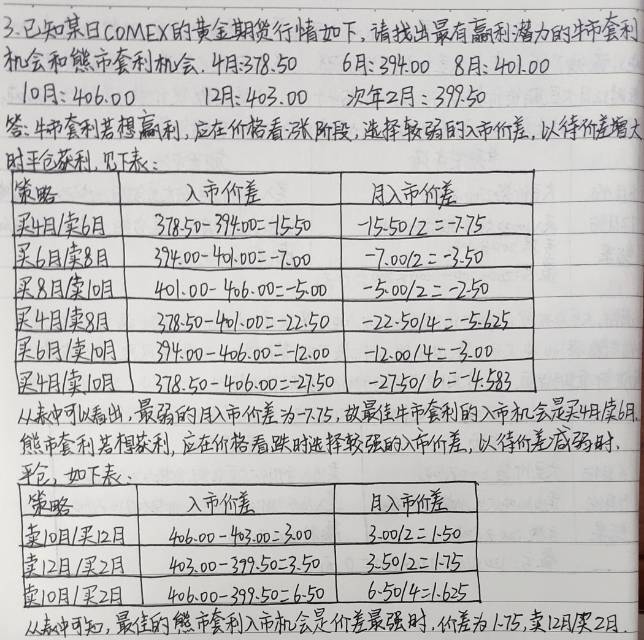 3.已知某日COMEX的黄金期货行情如下,请找出最有赢利潜力的牛市套利
机会和熊市套利机会.4月:378.50 6月:394.00 8月:401.00
10月:406.00 12月:403.00 次年2月:399.50
答:牛市套利若想赢利,应在价格看涨阶段,选择较弱的入市价差,以待价差增大
时平仓获利,见下表:
策略 入市价差 月入市价差
买4月/卖6月 378.50-394.00=-15.50 -15.50/2=-7.75
买6月/卖8月 394.00-401.00=-7.00 -7.00/2=-3.50
买8月/卖10月 401.00-406.00=-5.00 -5.00/2=-2.50
买4月/卖8月 378.50-401.00=-22.50 -22.50/4=-5.625
买6月/卖10月 394.00-406.00=-12.00 -12.00/4=-3.00
买4月/卖10月 378.50-406.00=-27.50 -27.50/6=-4.583
从表中可以看出,最弱的月入市价差为-7.75,故最佳牛市套利的入市机会是买4月/卖6月.
熊市套利若想获利,应在价格看跌时选择较强的入市价差,以待价差减弱时.
平仓,如下表:
策略 入市价差 月入市价差
卖10月/买12月 406.00-403.00=3.00 3.00/2=1.50
卖12月/买2月 403.00-399.50=3.50 3.50/2=1.75
卖10月/买2月 406.00-399.50=6.50 6.50/4=1.625
从表中可知,最佳的熊市套利入市机会是价差最强时,价差为1.75,卖12月/买2月.